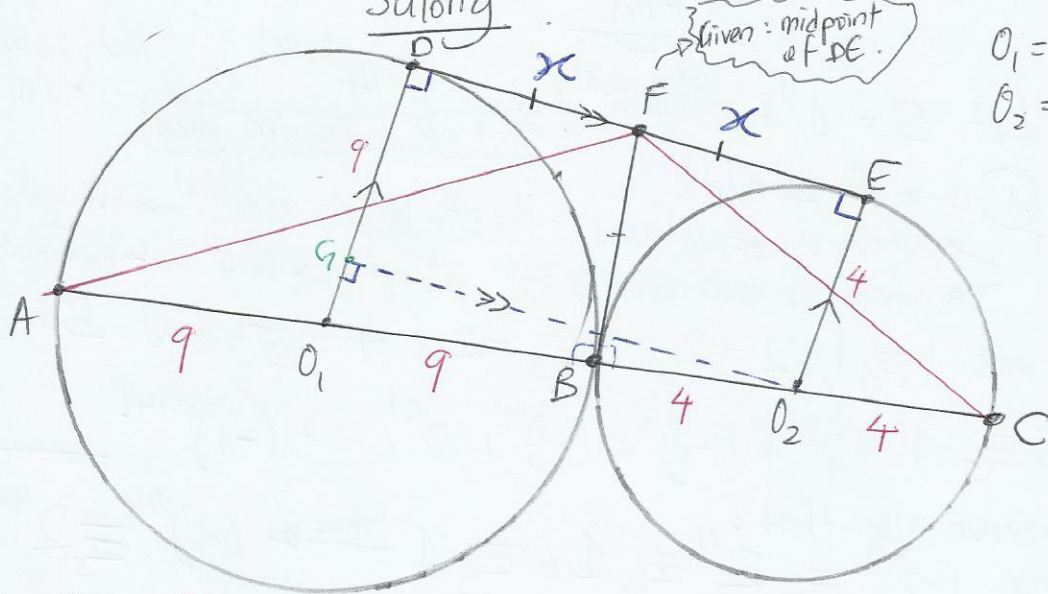 Sulong
Given: midpoint
of DE.
O₁ =
O₂ =
D
x
F
x
E
9
G
4
A
9
O₁
9
B
4
O₂
4
C